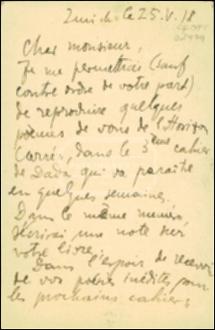 Zurich le 25.V.18
Cher monsieur,
Je me permettrai (sauf
contre ordre de votre part)
de reproduire quelques
poèmes de vous de l'Horizon
Carré, dans le 3ème cahier
de Dada qui va paraître
en quelques semaines.
Dans le même numéro,
j'écrirai une note sur
votre livre.
Dans l'espoir de recevoir
de vos poèmes inédits pour
les prochains cahiers